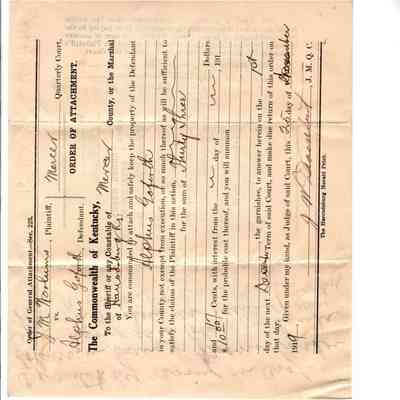 Order of General Attachment—Sec. 223.
J. M.
vs. Plaintiff,
Alphus Goforth, Defendant.
Mercer Quarterly Court.
ORDER OF ATTACHMENT.
The Commonwealth of Kentucky,
To the Sheriff or any Constable of Mercer County, or the Marshal
of Harrodsburg:
You are commanded to attach and safely keep the property of the Defendant
Alphus Goforth
in your County not exempt from execution, or so much thereof as will be sufficient to
satisfy the claims of the Plaintiff in this action,
for the sum of Thirty Three Dollars
and Cents, with interest from the day of 191
$10.00 for the probable cost thereof, and you will summon
, the garnishee, to answer herein on the 1st
day of the next Term of said Court, and make due return of this order on
that day.
Given under my hand, as Judge of said Court, this day of November
1919
J. M. Q. C.
The Harrodsburg Herald Print.